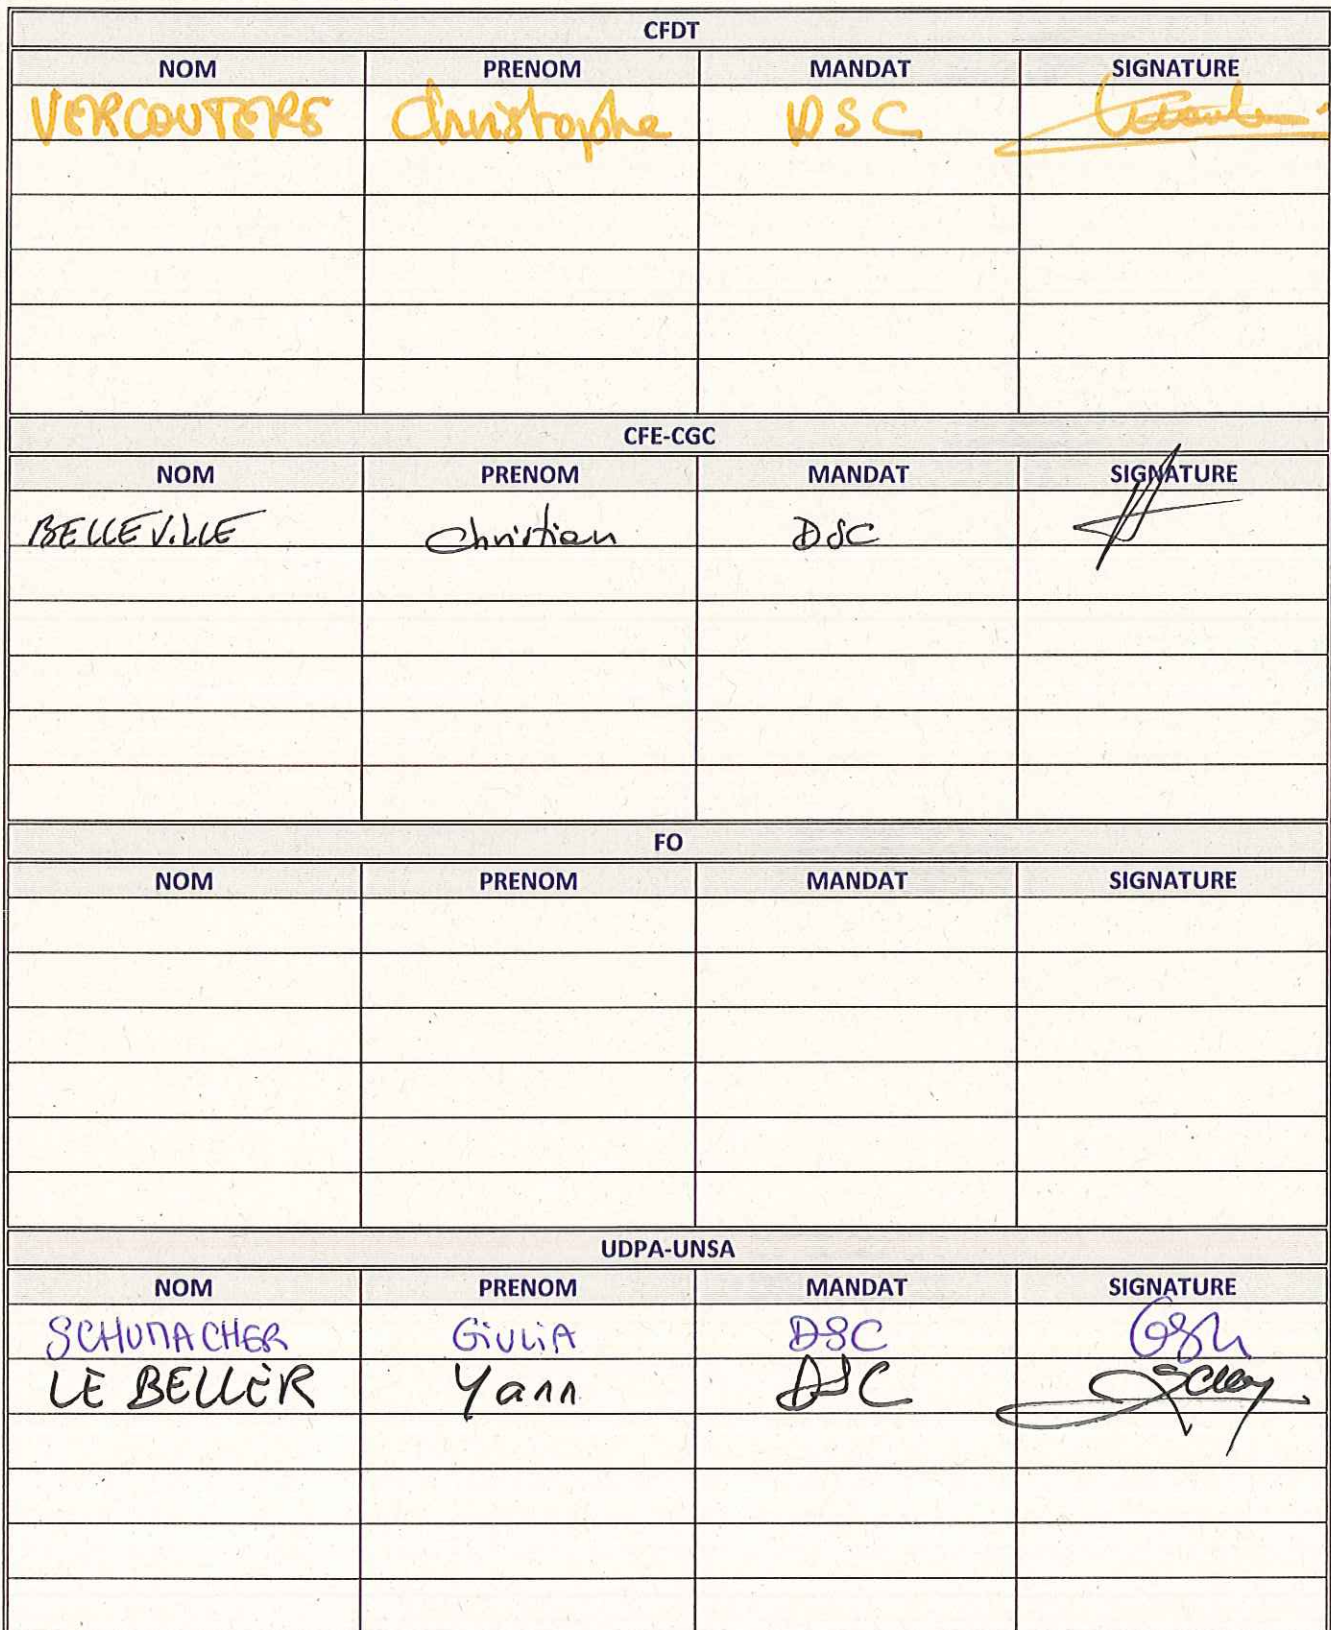 CFDT
NOM PRENOM MANDAT SIGNATURE
VERCOUTERE Christophe DSC
CFE-CGC
NOM PRENOM MANDAT SIGNATURE
BELLEVILLE Christian DSC
FO
NOM PRENOM MANDAT SIGNATURE
UDPA-UNSA
NOM PRENOM MANDAT SIGNATURE
SCHUMACHER GiULiA DSC
LE BELLER Yann DSC